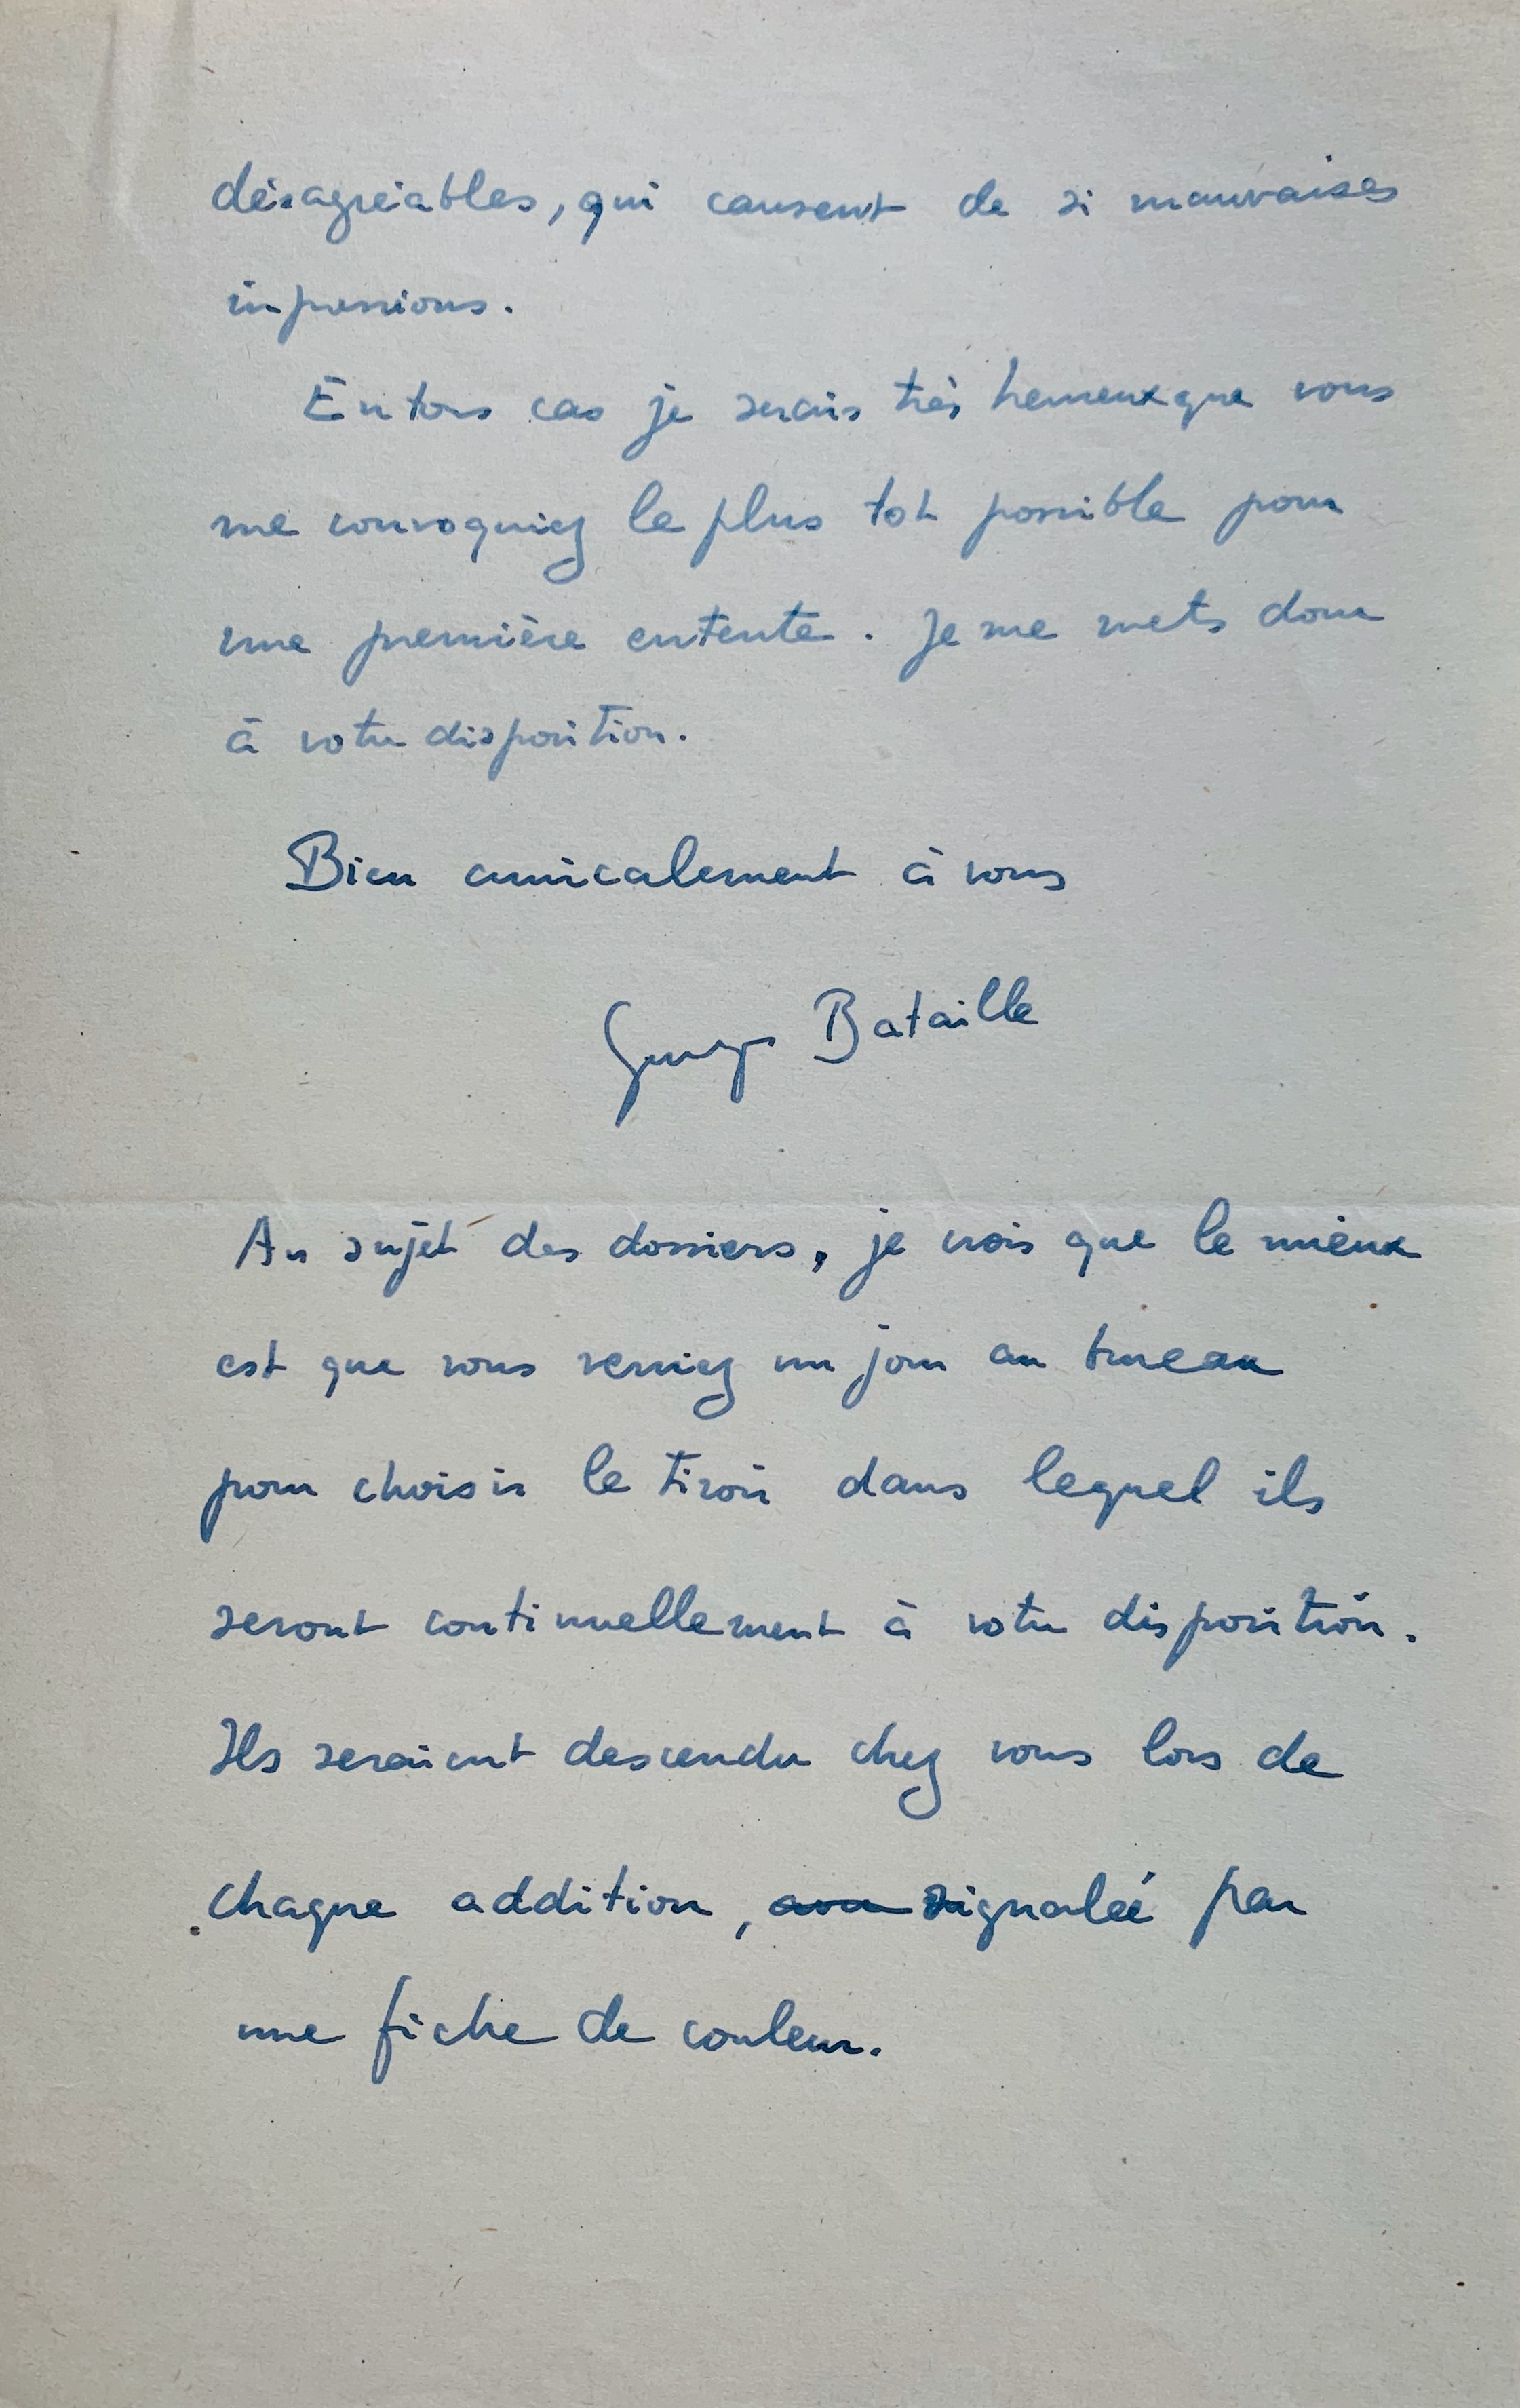 désagréables, qui causent de si mauvaises
impressions.
En tous cas je serais très heureux que vous
me convoquiez le plus tot possible pour
une première entente. Je me mets donc
à votre disposition.
Bien amicalement à vous
Georges Bataille
Au sujet des dossiers, je crois que le mieux
est que vous veniez un jour au bureau
pour choisir le tiroir dans lequel ils
seront continuellement à votre disposition.
Ils seraient descendu chez vous lors de
chaque addition, signalée par
une fiche de couleur.